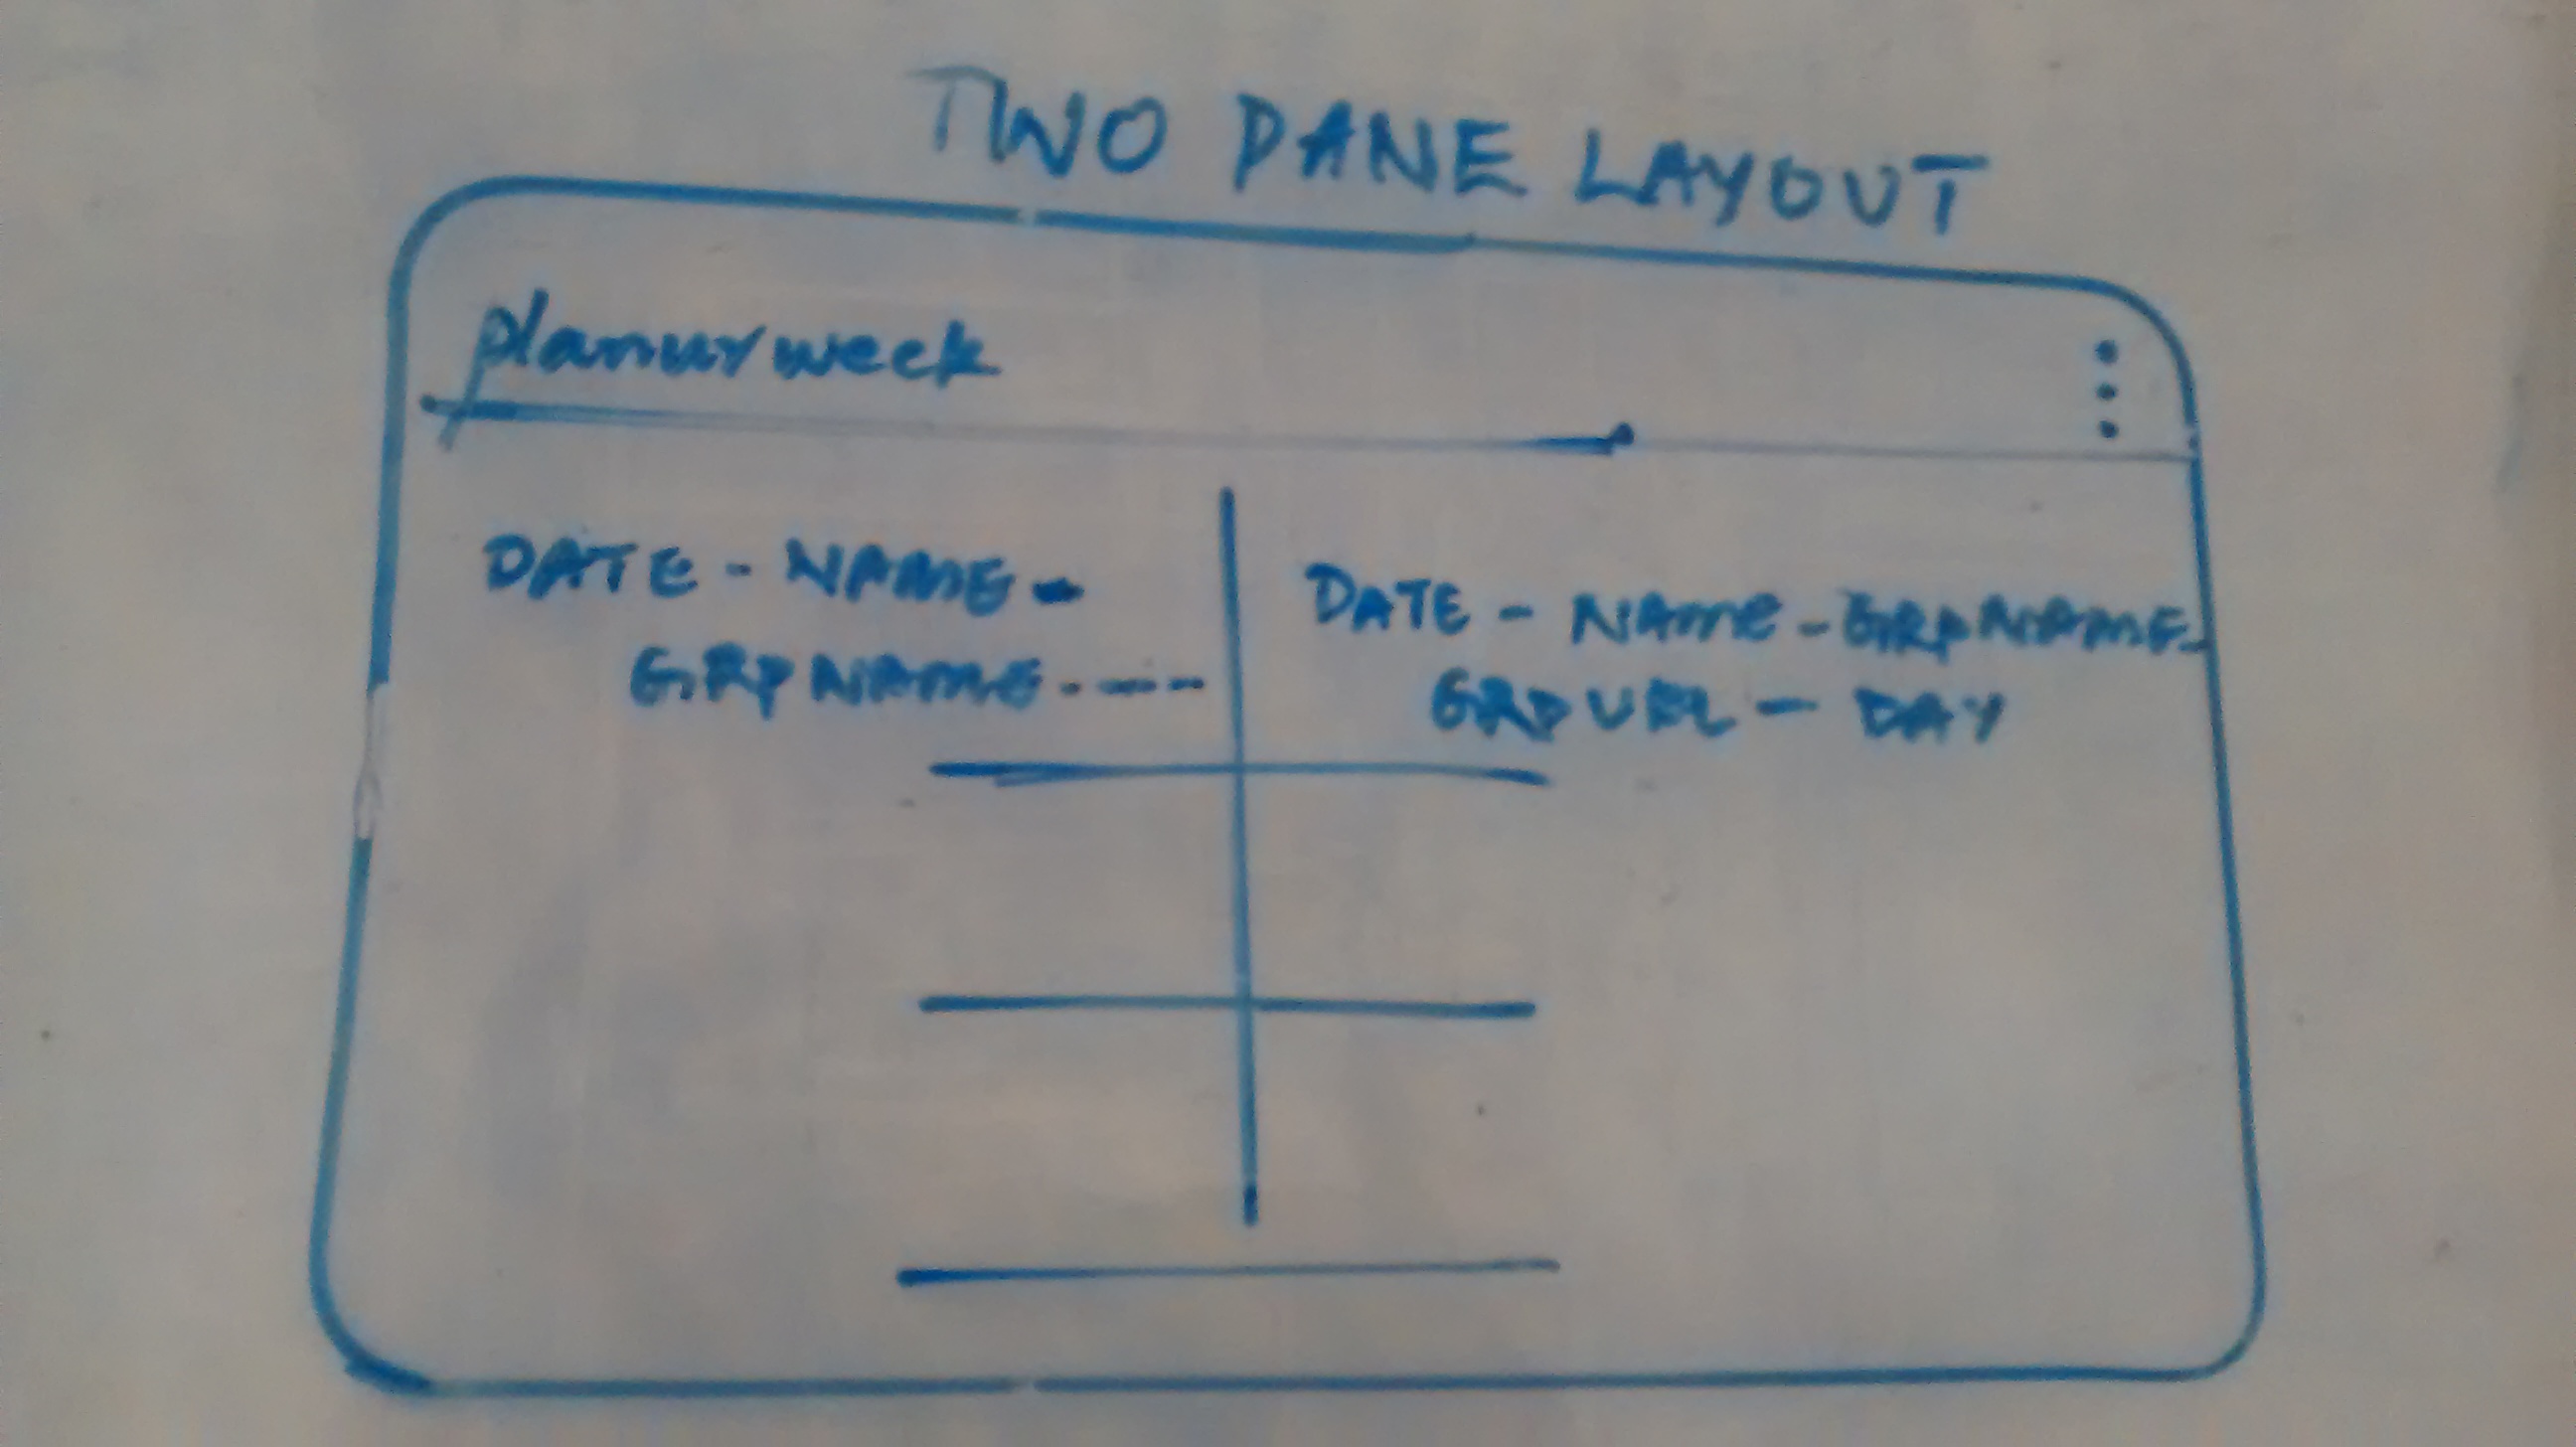 TWO PANE LAYOUT
planuryweek
DATE - NAME -
GRPNAME - ---
DATE - NAME - GRPNAME -
GRPURL - DAY